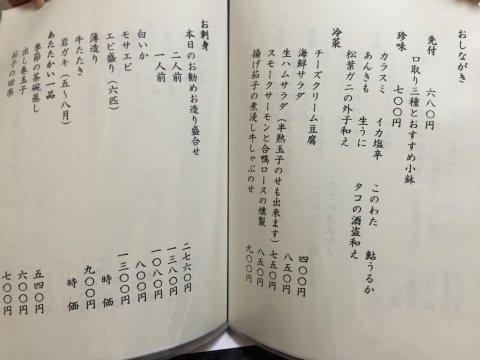 おしながき
先付　六八〇円
口取り三種とおすすめ小鉢
珍味　七〇〇円
カラスミ　イカ塩辛　このわた　鮎うるか
あんきも　生うに　タコの酒盗和え
松葉ガニの外子和え
冷菜
チーズクリーム豆腐　四〇〇円
海鮮サラダ　八五〇円
生ハムサラダ（半熟玉子のせも出来ます）　七五〇円
スモークサーモンと合鴨ロースの燻製　八五〇円
揚げ茄子の煮浸し牛しゃぶのせ　九〇〇円
お刺身
本日のお勧めお造り盛合せ
二人前　二七六〇円
一人前　一三八〇円
白いか　一〇八〇円
モサエビ　八〇〇円
エビ盛り（六匹）　一三〇〇円
薄造り　時価
牛たたき　九〇〇円
岩ガキ（五～八月）　時価
あたたかい一品
季節の茶碗蒸し　五四〇円
出し巻玉子　六〇〇円
茄子の田楽　七〇〇円